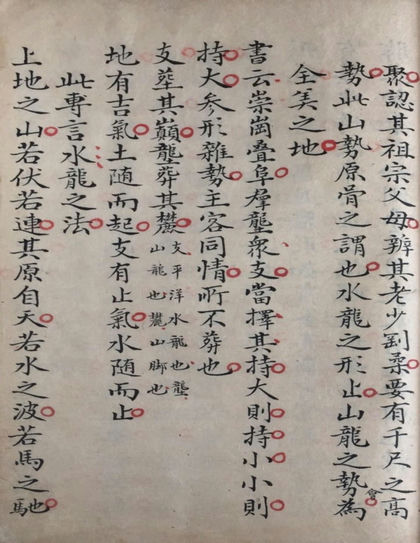 聚認其祖宗父母辨其老少到桑要有千尺之高
勢此山勢原骨之謂也水龍之形止山龍之勢為會
全美之地
書云崇崗叠阜羣壟衆支當擇其持大則持小小則
持大參形雜勢主客同情所不葬也
支葬其巔壟葬其麓 支平洋水龍也壟山龍也麓山脚也
地有吉氣土隨而起支有止氣水隨而止
此專言水龍之法
上地之山若伏若連其原自天若水之波若馬之馳也